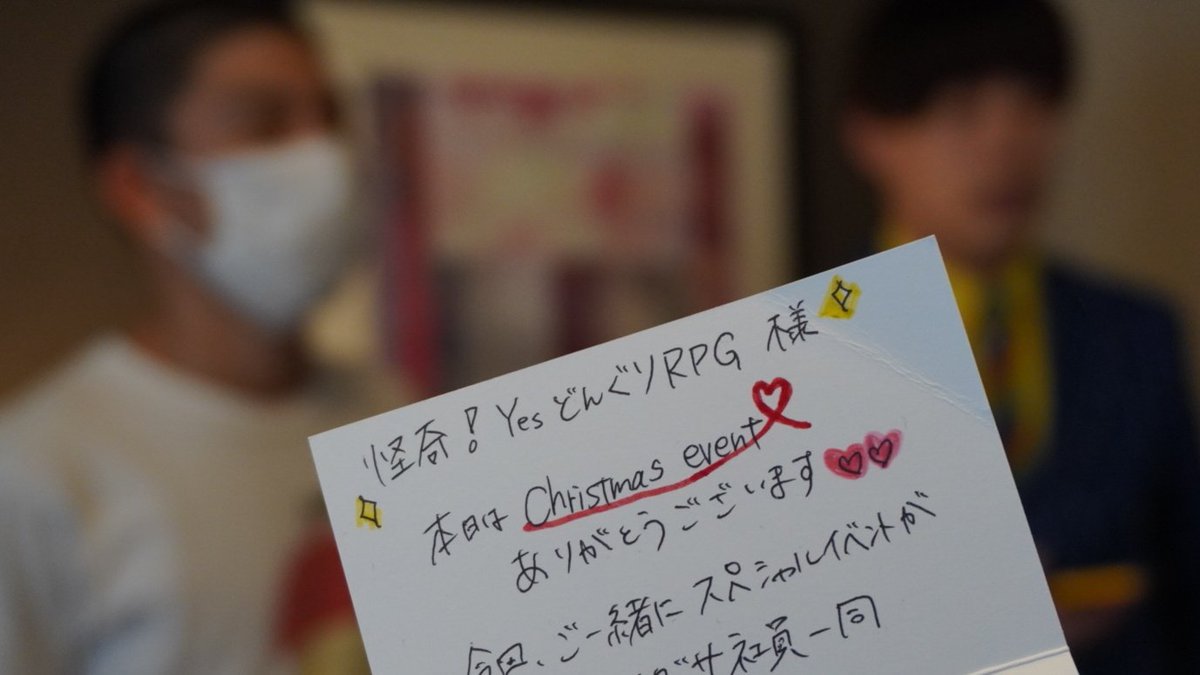 怪奇!YesどんぐりRPG 様
本日は Christmas event
ありがとうございます
今回、ご一緒にスペシャルイベントが
社員一同